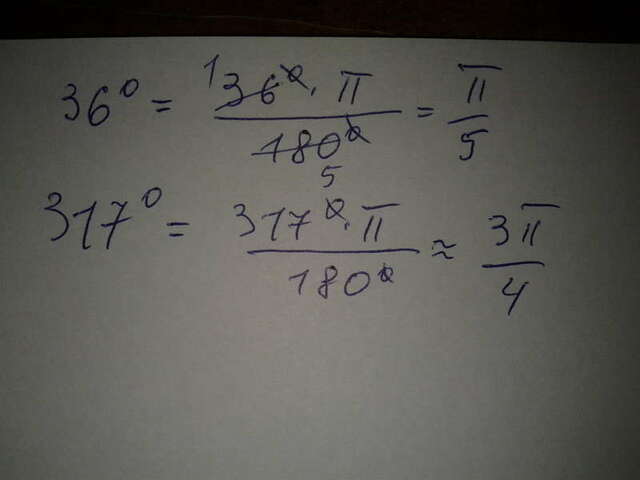 36° = 1 36° · π / 180° 5 = π / 5
317° = 317° · π / 180° ≈ 3π / 4